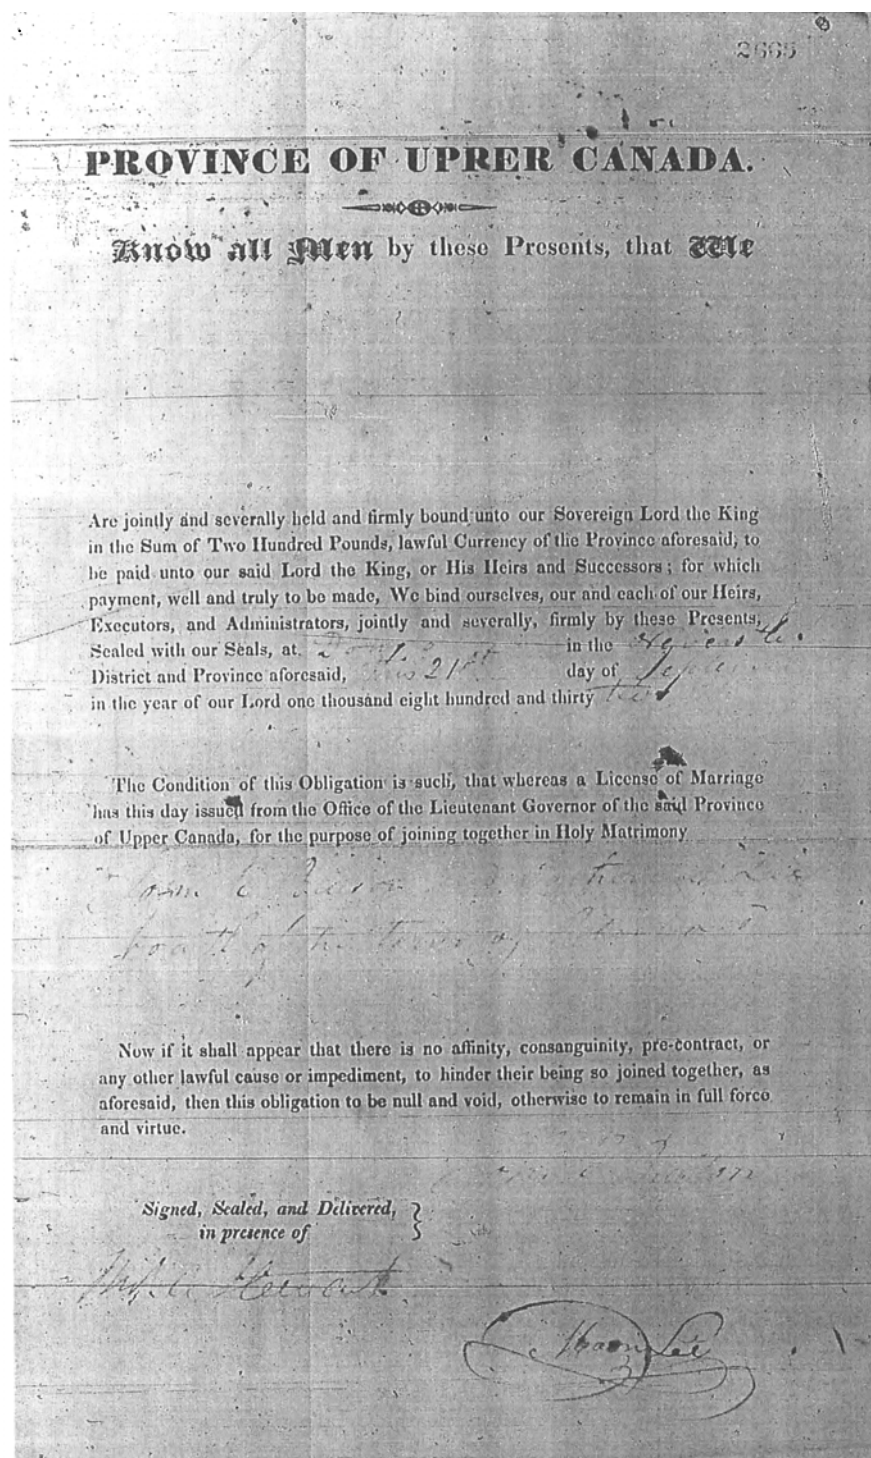 2665
PROVINCE OF UPPER CANADA.
Know all Men by these Presents, that We
Are jointly and severally held and firmly bound unto our Sovereign Lord the King
in the Sum of Two Hundred Pounds, lawful Currency of the Province aforesaid, to
be paid unto our said Lord the King, or His Heirs and Successors; for which
payment, well and truly to be made, We bind ourselves, our and each of our Heirs,
Executors, and Administrators, jointly and severally, firmly by these Presents,
Sealed with our Seals, at in the
District and Province aforesaid, this 21st day of
in the year of our Lord one thousand eight hundred and thirty two
The Condition of this Obligation is such, that whereas a License of Marriage
has this day issued from the Office of the Lieutenant Governor of the said Province
of Upper Canada, for the purpose of joining together in Holy Matrimony
of the Town of
Now if it shall appear that there is no affinity, consanguinity, pre-contract, or
any other lawful cause or impediment, to hinder their being so joined together, as
aforesaid, then this obligation to be null and void, otherwise to remain in full force
and virtue.
Signed, Sealed, and Delivered,
in presence of
Stewart
Lee